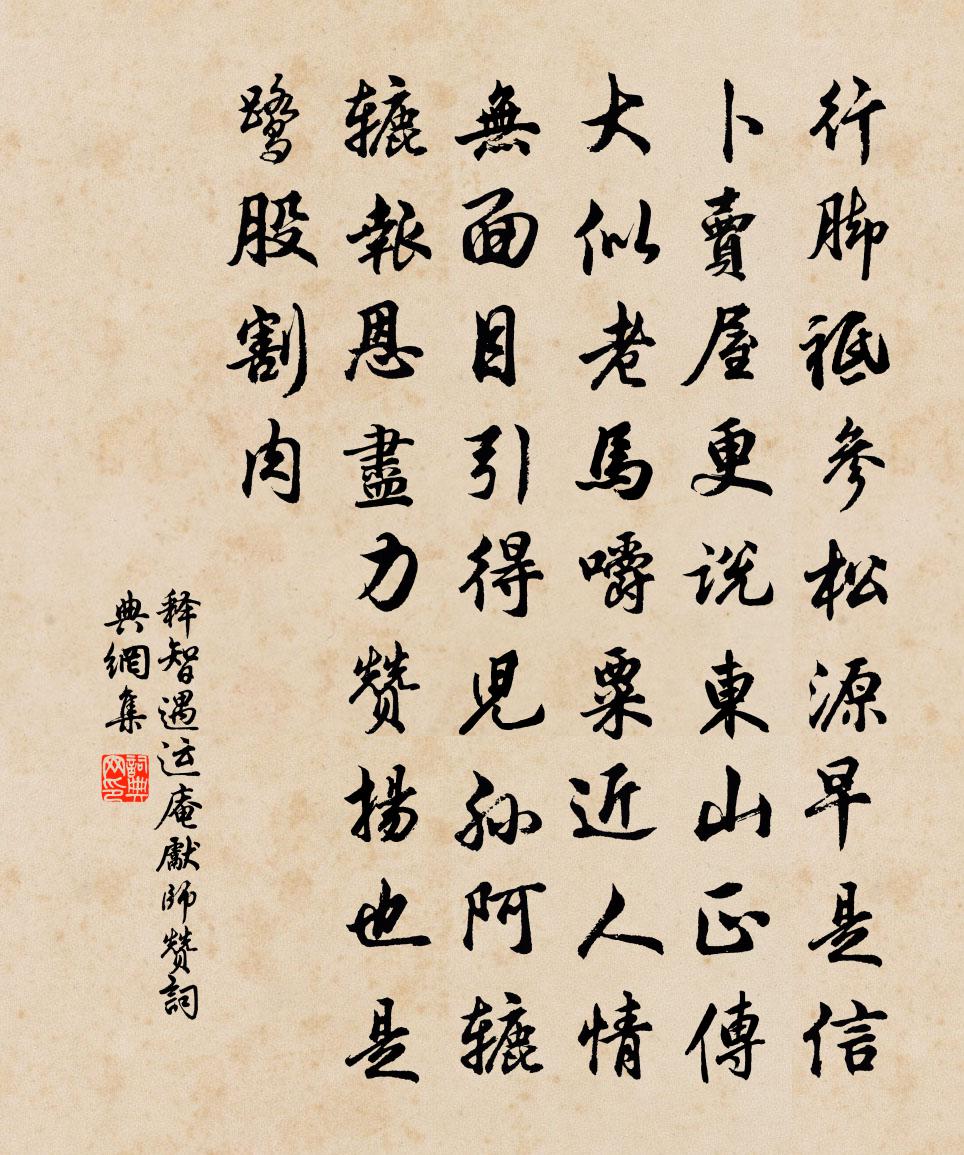 行脚祗參松源早是信
卜賣屋更説東山正傳
大似老馬嚼粟近人情
無面目引得児孙阿辘
辘報恩盡力赞揚也是
鹭股割肉
释智遇运庵獻師赞詞
典網集
詞典网印